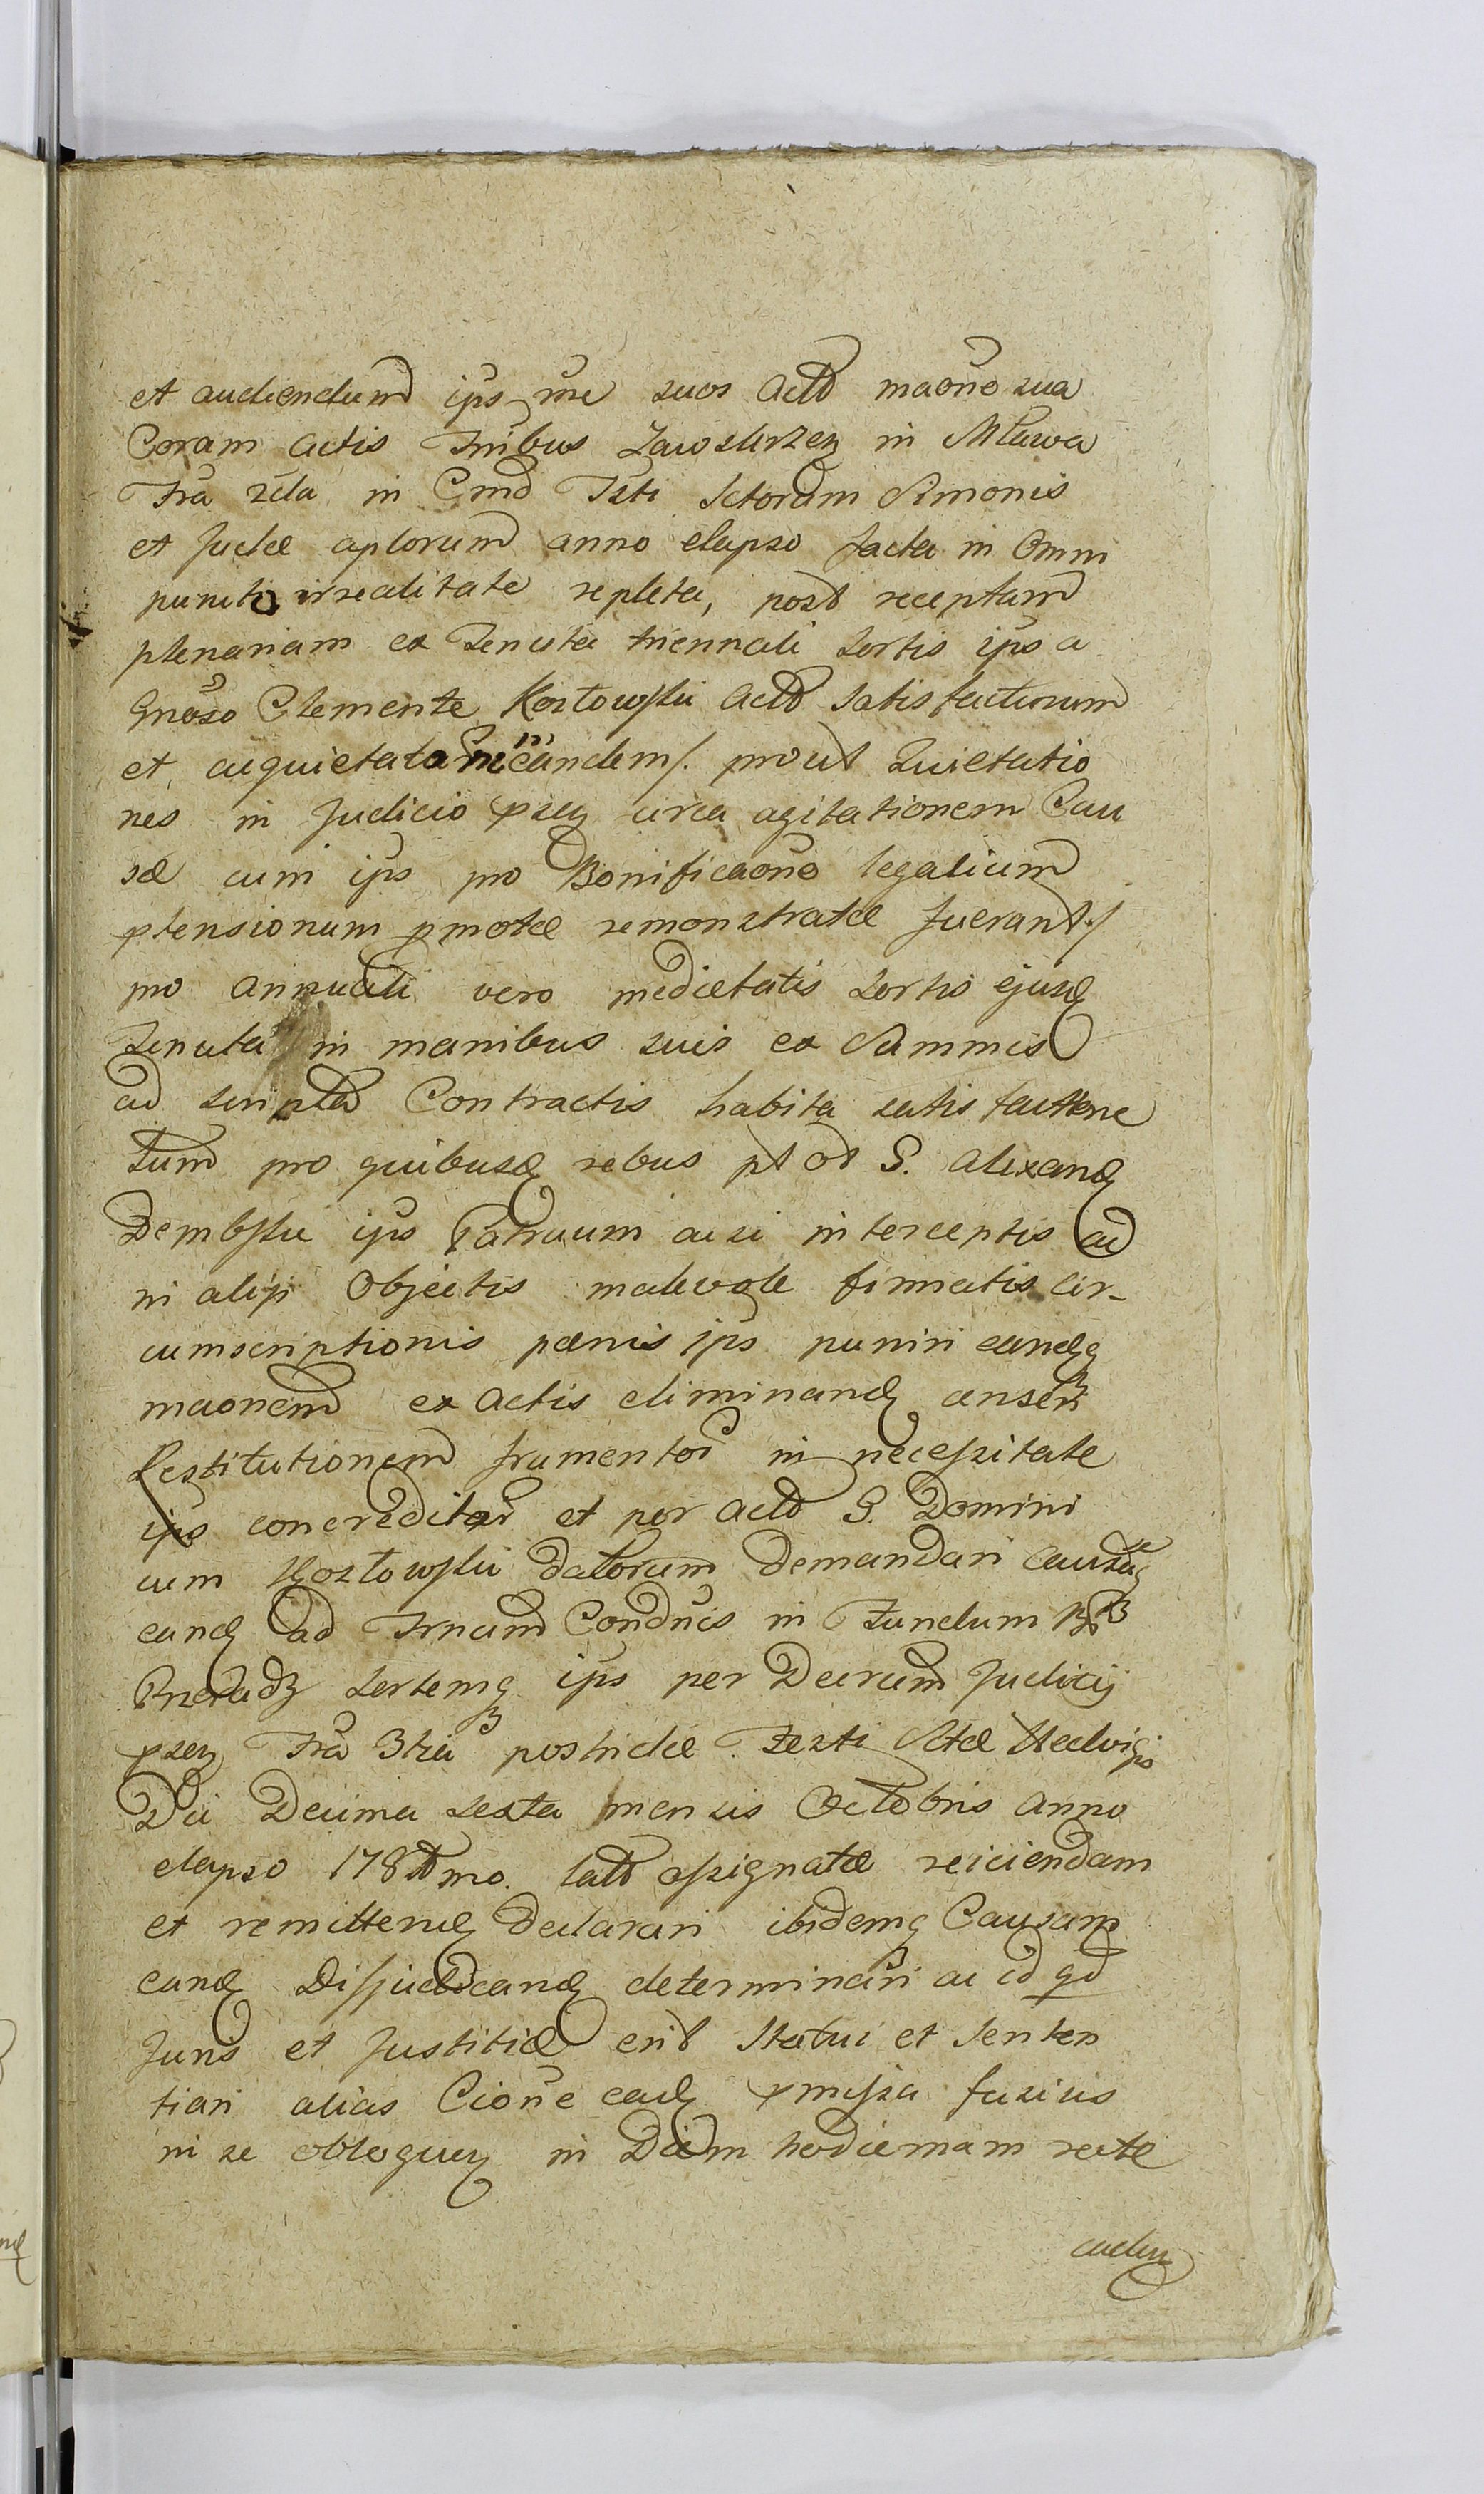 et audiendum ips suos Acto maone sua
Coram Actis Trribus Zawskrzen in Mława
Fra 2da in Cmo Festi Sctorum Simonis
et Judæ aplorum anno elapso facta in Omni
puncto irrealitate repleta, post receptam
plenariam ex Tenuta triennali Sortis ips a
Gnoso Clemente Kozłowski Acto Satisfactionem
et acquietatam eandem/. prout Quietatio
nes in Judicio psen circa agitationem Cau
sæ cum ips pro Bonificaone legalium
ptensionum pmotæ remonstratæ fuerant./
pro annuali vero medietatis Sortis ejusd
Tenuta in manibus suis ex Summis
ad Contractis habita satisfactione
tum pro quibusd rebus pt ob G. Alexand
Dembski ips Patruum ac si interceptis ac
in alijs Objectis malevole firmatis cir-
cumscriptionis pænis ips puniri eandq
maonem ex Actis eliminand censeri
Restitutionem frumentor in necessitate
ips concreditor et per Acto G. Domini
cum Kozłowski Datorum Demandari Causaq
eand ad Trnum Conduis in Fundum
sortemq ips per Decrum Judicij
psen Fra 3tia postridie Festi Stæ Hedvigis
Die Decima sexta mensis Octobris Anno
elapso 178 mo. lato assignatæ reiiciendam
et remittend Declarari ibidemq Causam
eand Disjudicand determinari ac id qd
Juris et Justitiæ erit Statui et Senten
tiari alias Cione ead pmissa fusius
in se obloquen in Diem hodiernam recte
caden